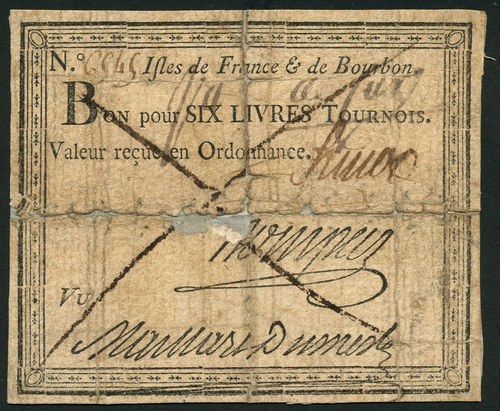 N.º Isles de France & de Bourbon.
BON pour SIX LIVRES TOURNOIS.
Valeur reçue en Ordonnance.
VU
Maillart Dumesle